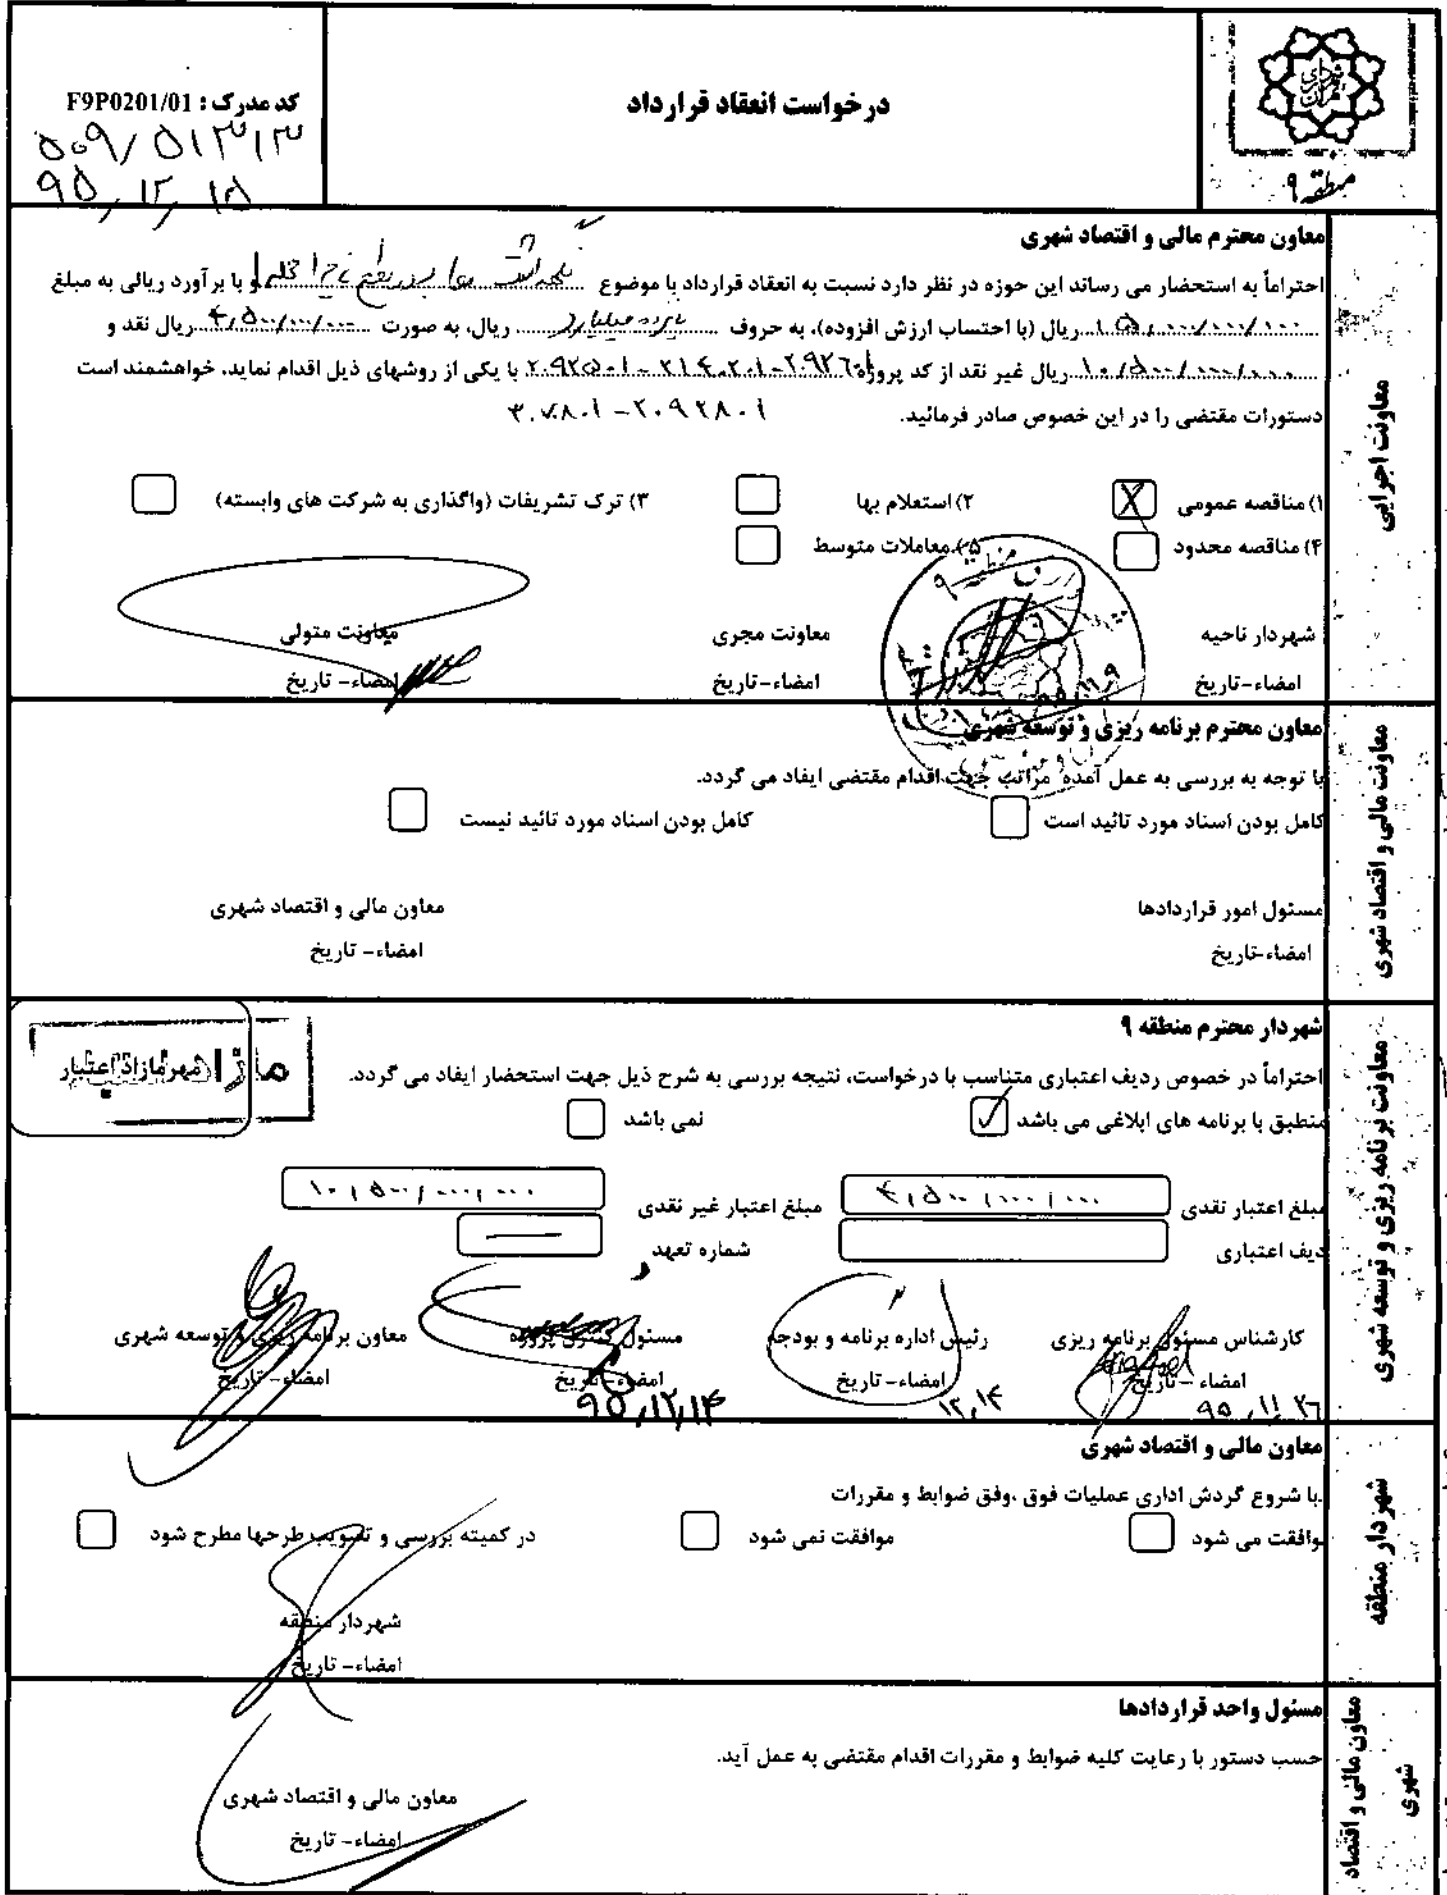 شهرداری تهران
منطقه ۹
درخواست انعقاد قرارداد
کد مدرک : F9P0201/01
۵۰۹/۵۱۳۱۳
۹۵,۱۲,۱۵
معاونت اجرایی
معاون محترم مالی و اقتصاد شهری
احتراماً به استحضار می رساند این حوزه در نظر دارد نسبت به انعقاد قرارداد با موضوع و با برآورد ریالی به مبلغ
۱۵,۰۰۰/۰۰۰/۰۰۰ ریال (با احتساب ارزش افزوده)، به حروف پانزده میلیارد ریال، به صورت ۴,۵۰۰/۰۰۰/۰۰۰ ریال نقد و
۱۰/۵۰۰/۰۰۰/۰۰۰ ریال غیر نقد از کد پروژه با یکی از روشهای ذیل اقدام نماید، خواهشمند است
دستورات مقتضی را در این خصوص صادر فرمائید. ۲۰۹۲۸۰۱ - ۳۰۷۸۰۱
۱) مناقصه عمومی X ۲) استعلام بها ۳) ترک تشریفات (واگذاری به شرکت های وابسته)
۴) مناقصه محدود ۵) معاملات متوسط
شهردار ناحیه معاونت مجری معاونت متولی
امضاء-تاریخ امضاء-تاریخ امضاء- تاریخ
معاونت مالی و اقتصاد شهری
معاون محترم برنامه ریزی و توسعه شهری
با توجه به بررسی به عمل آمده مراتب جهت اقدام مقتضی ایفاد می گردد.
کامل بودن اسناد مورد تائید است کامل بودن اسناد مورد تائید نیست
مسئول امور قراردادها معاون مالی و اقتصاد شهری
امضاء-تاریخ امضاء- تاریخ
معاونت برنامه ریزی و توسعه شهری
شهردار محترم منطقه ۹
مهر مازاد اعتبار
احتراماً در خصوص ردیف اعتباری متناسب با درخواست، نتیجه بررسی به شرح ذیل جهت استحضار ایفاد می گردد.
منطبق با برنامه های ابلاغی می باشد ✓ نمی باشد
مبلغ اعتبار نقدی ۴,۵۰۰/۰۰۰/۰۰۰ مبلغ اعتبار غیر نقدی ۱۰,۵۰۰/۰۰۰/۰۰۰
دیف اعتباری شماره تعهد —
کارشناس مسئول برنامه ریزی رئیس اداره برنامه و بودجه مسئول کنترل پروژه معاون برنامه ریزی و توسعه شهری
امضاء - تاریخ امضاء- تاریخ امضاء- تاریخ امضاء- تاریخ
۹۵,۱۱,۲۶ ۱۲,۱۴ ۹۵,۱۲,۱۴
شهردار منطقه
معاون مالی و اقتصاد شهری
با شروع گردش اداری عملیات فوق ،وفق ضوابط و مقررات
موافقت می شود موافقت نمی شود در کمیته بررسی و تصویب طرحها مطرح شود
شهردار منطقه
امضاء- تاریخ
معاون مالی و اقتصاد شهری
مسئول واحد قراردادها
حسب دستور با رعایت کلیه ضوابط و مقررات اقدام مقتضی به عمل آید.
معاون مالی و اقتصاد شهری
امضاء- تاریخ